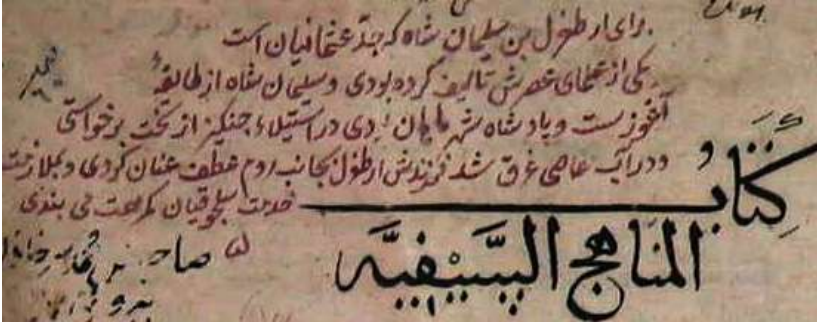 برای ارطغرل بن سلیمان شاه که جدّ عثمانیان است
یکی از علمای عصرش تالیف کرده بودی و سلیمان شاه از طائفهٔ
آغوزست و پادشاه شهر ماهان بدی در استیلاء جنکیز از تخت برخواستی
ودر آب عاصی غرق شد فرزندش ارطغرل بجانب روم عطف عنان کردی و بملازمت
خدمت سلجوقیان کمر همت می بندی
کتاب
المناهج السیفیّه